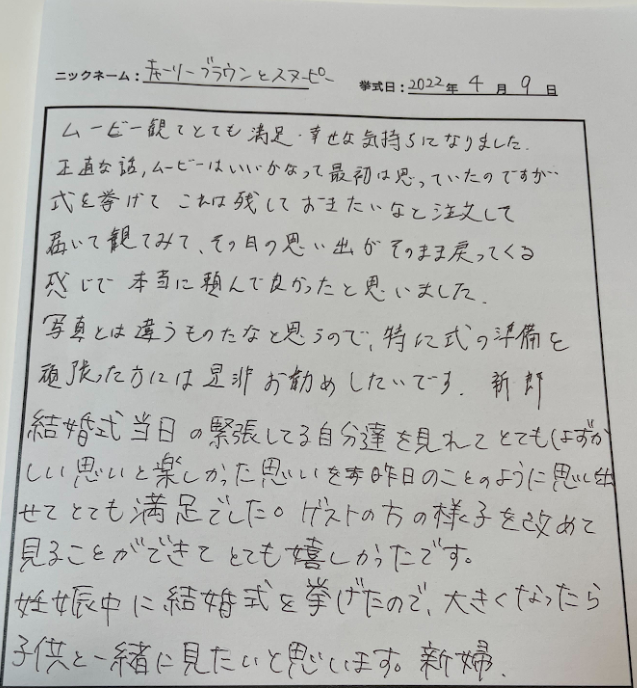 ニックネーム：チャーリーブラウンとスヌーピー 挙式日：2022年 4月 9日
ムービー観てとても満足・幸せな気持ちになりました。
正直な話、ムービーはいいかなって最初は思っていたのですが
式を挙げて これは残しておきたいなと注文して
届いて観てみて、その日の思い出がそのまま戻ってくる
感じで 本当に頼んで良かったと思いました。
写真とは違うものだなと思うので、特に式の準備を
頑張った方には是非お勧めしたいです。 新郎
結婚式当日の緊張してる自分達を見れてとてもはずか
しい思いと楽しかった思いを昨日のことのように思い出
せてとても満足でした。ゲストの方の様子を改めて
見ることができてとても嬉しかったです。
妊娠中に結婚式を挙げたので、大きくなったら
子供と一緒に見たいと思います。新婦.